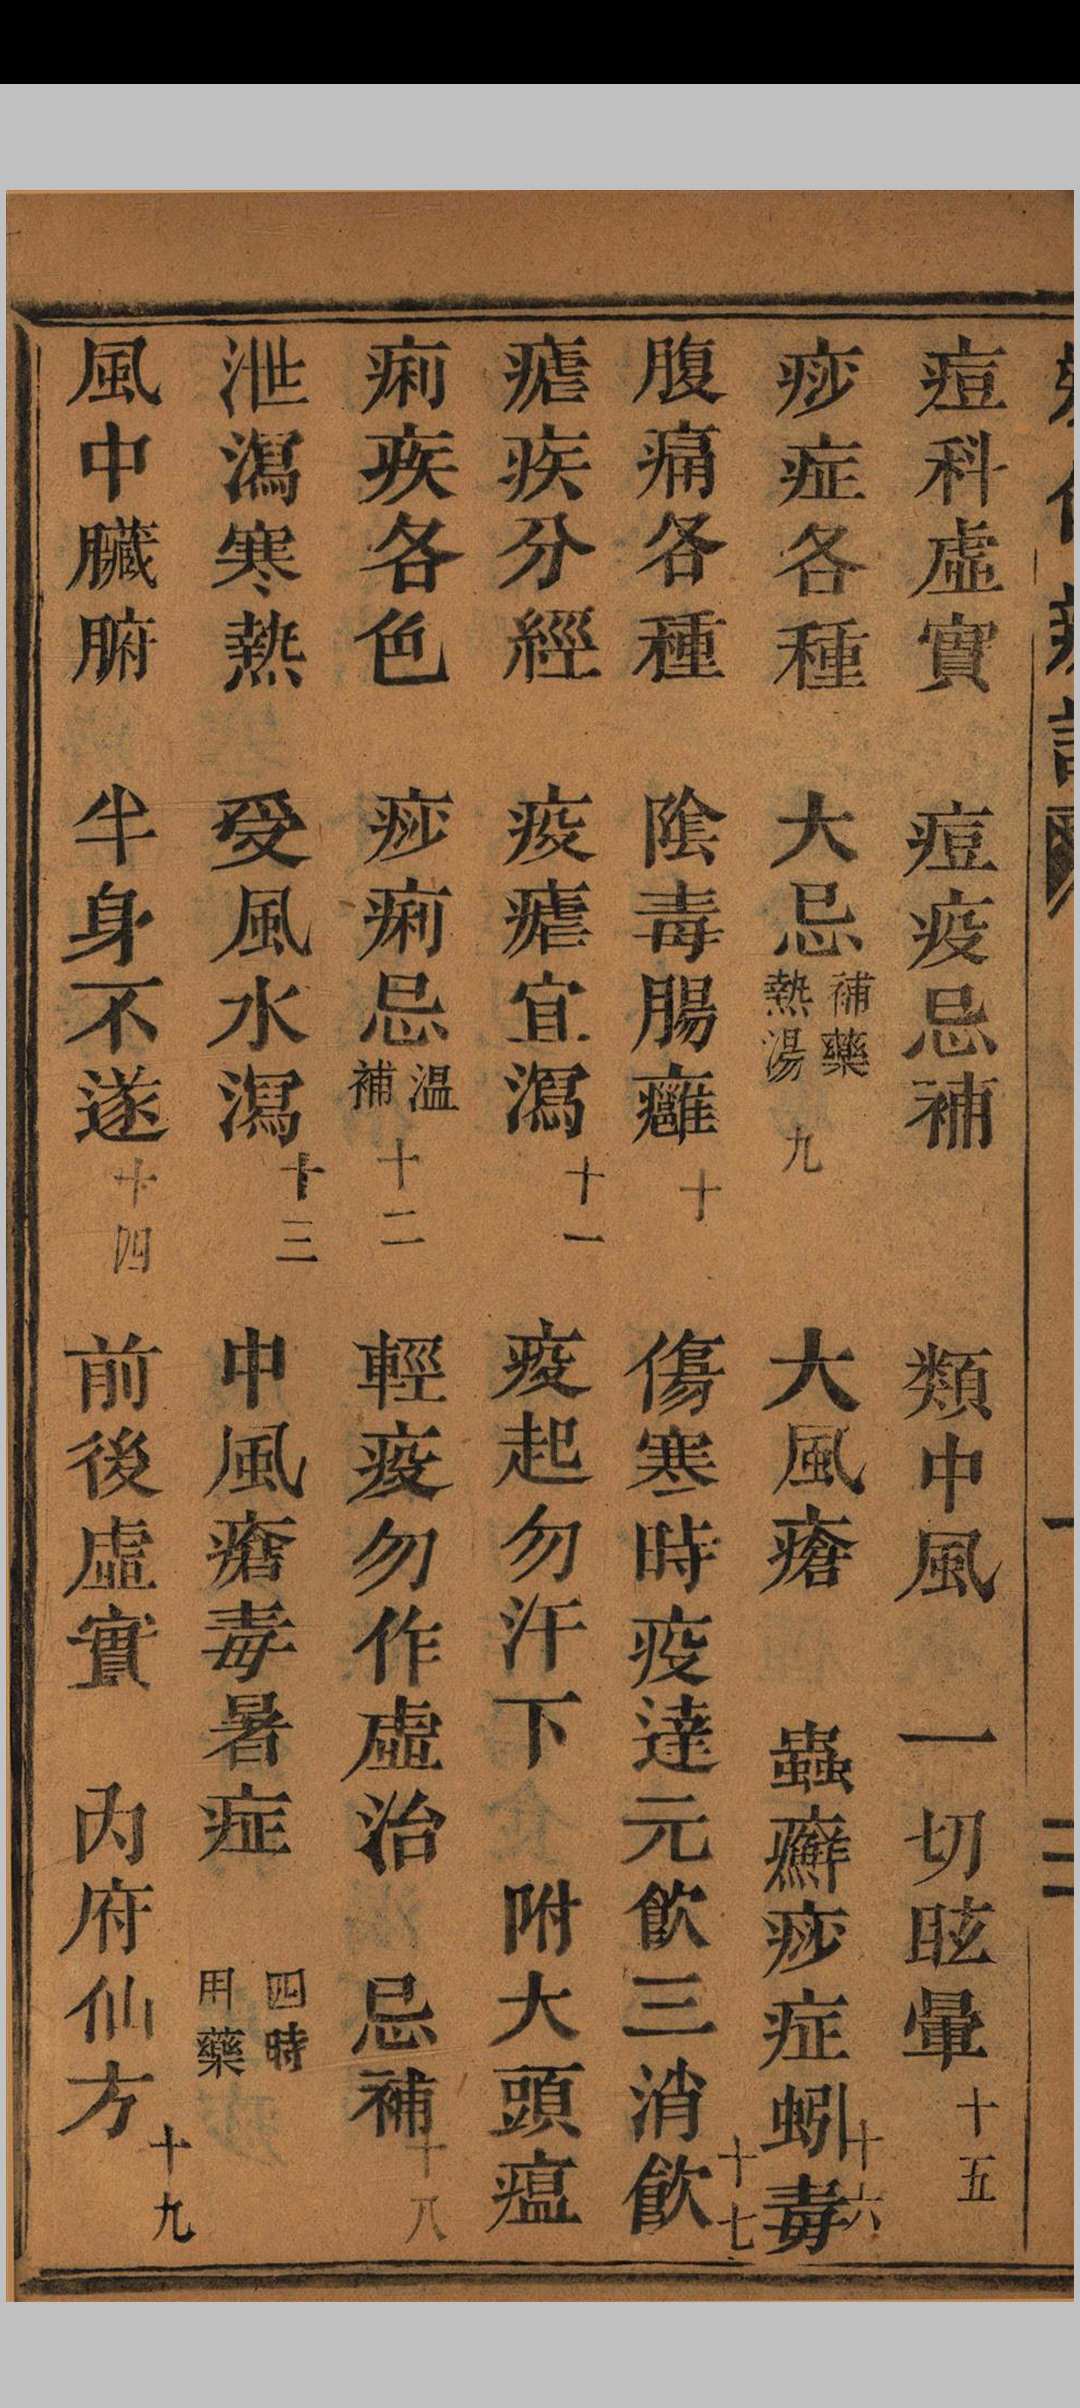 痘科虛實　痘疫忌補　類中風　一切眩暈十五
痧症各種　大忌補藥熱湯九　大風瘡　蟲癬痧症蚓毒十六
腹痛各種　陰毒腸癰十　傷寒時疫達元飲三消飲十七
瘧疾分經　疫瘧宜瀉十一　疫起勿汗下　附大頭瘟
痢疾各色　痧痢忌温補十二　輕疫勿作虛治　忌補十八
泄瀉寒熱　受風水瀉十三　中風瘡毒暑症　四時用藥
風中臟腑　半身不遂十四　前後虛實　內府仙方十九